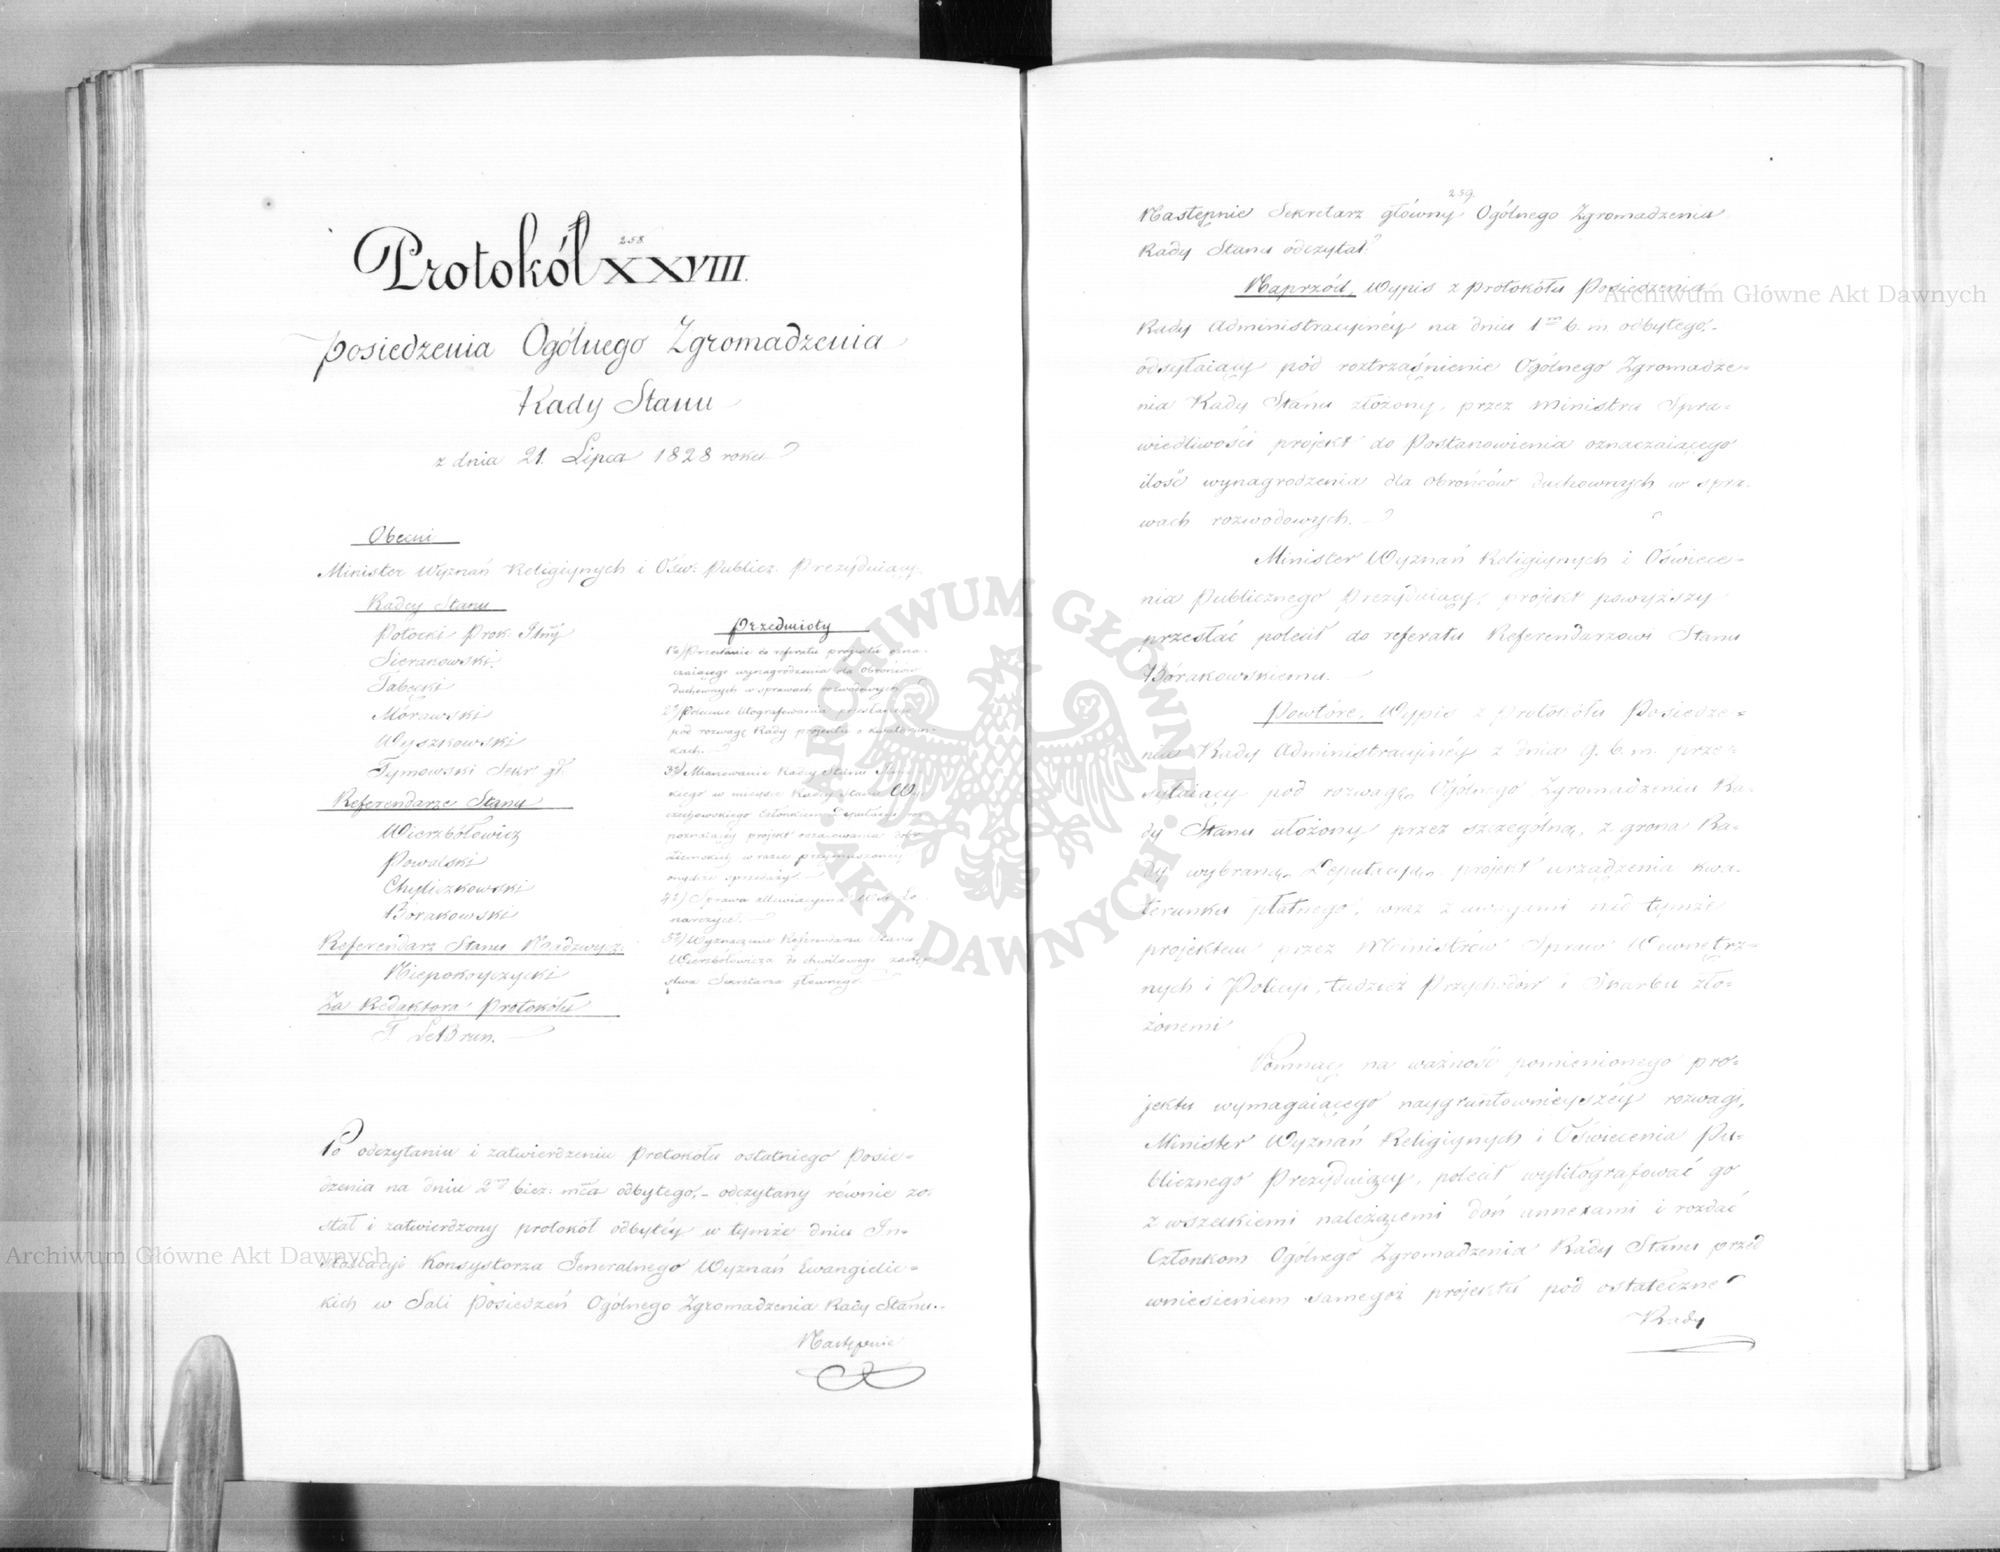 258.
Protokół XXVIII.
posiedzenia Ogólnego Zgromadzenia
Rady Stanu
z dnia 21. Lipca 1828 roku
Obecni
Minister Wyznań Religiynych i Ośw: Public: Prezyduiący.
Radcy Stanu
Potocki Prok: Jlny
Sieranowski
Tabęcki
Morawski
Wyszkowski
Tymowski Sekr: gł:
Referendarze Stanu
Wierzbołowicz
Powalski
Chyliczkowski
Borakowski
Referendarz Stanu Nadzwycz:
Niepokoyczycki
Za Redaktora Protokółu
F. Le Brun.
Przedmioty
1o) Przesłanie do referatu projektu ozna-
czaiącego wynagrodzenia dla Obrońców
duchownych w sprawach rozwodowych
2o) Polecenie litografowania przesłanego
pod rozwagę Rady projektu o kwaterun-
kach.
3o) Mianowanie Radcy Stanu
kiego w mieysce Radcy Stanu Wo-
czechowskiego Członkiem Deputacyi roz-
poznaiącey projekt szacowania dóbr
ziemskich w razie przymuszoney
onychże sprzedaży.
4o) Sprawa
5o) Wyznaczenie Referendarza Stanu
Wierzbołowicza do chwilowego zastęp-
stwa Sekretarza głównego.
Po odczytaniu i zatwierdzeniu Protokołu ostatniego Posie-
dzenia na dniu 2go bież: mca odbytego,- odczytany równie zo-
stał i zatwierdzony protokół odbytéy w tymże dniu In-
stallacyi Konsystorza Jeneralnego Wyznań Ewangielic-
kich w Sali Posiedzeń Ogólnego Zgromadzenia Rady Stanu.-
Następnie
259.
Następnie Sekretarz główny Ogólnego Zgromadzenia
Rady Stanu odczytał:
Naprzód, Wypis z protokółu Posiedzenia
Rady Administracyinéy na dniu 1m b. m. odbytego,-
odsyłaiący pod roztrząśnienie Ogólnego Zgromadze-
nia Rady Stanu złożony, przez Ministra Spra-
wiedliwości projekt do Postanowienia oznaczaiącego
ilość wynagrodzenia dla obrońców duchownych w spra-
wach rozwodowych.
Minister Wyznań Religiynych i Oświece-
nia Publicznego Prezyduiący, projekt powyższy
przesłać polecił do referatu Referendarzowi Stanu
Borakowskiemu.
Powtóre, Wypis z protokółu Posiedze-
nia Rady Administracyinéy z dnia 9. b. m. prze-
syłaiący pod rozwagę Ogólnego Zgromadzenia Ra-
dy Stanu ułożony przez szczególną, z grona Ra-
dy wybraną Deputacyą, projekt urządzenia kwa-
terunku płatnego, wraz z uwagami nad tymże
projektem przez Ministrów Spraw Wewnętrz-
nych i Policyi, tudzież Przychodów i Skarbu zło-
żonemi
Pomnąc na ważność pomienionego pro-
jektu wymagaiącego naygruntownieyszéy rozwagi,
Minister Wyznań Religiynych i Oświecenia Pu-
blicznego Prezyduiący, polecił wylitografować go
z wszelkiemi należącemi doń annexami i rozdać
Członkom Ogólnego Zgromadzenia Rady Stanu przed
wniesieniem samegoż projektu pod ostateczne
Rady
Archiwum Główne Akt Dawnych
Archiwum Główne Akt Dawnych
ARCHIWUM GŁÓWNE AKT DAWNYCH